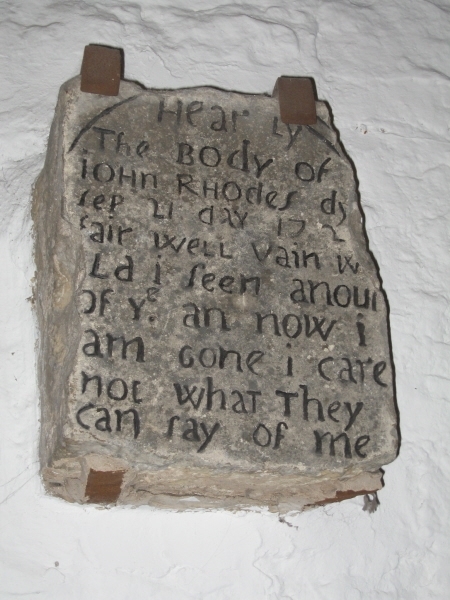 Hear Ly
The BODy OF
iOHn RHODes dy
sep 21 day 172
fair WELL Vain W
Ld i seen anouf
OF Ye. an now i
am Gone i care
not wHaT THey
can say OF me